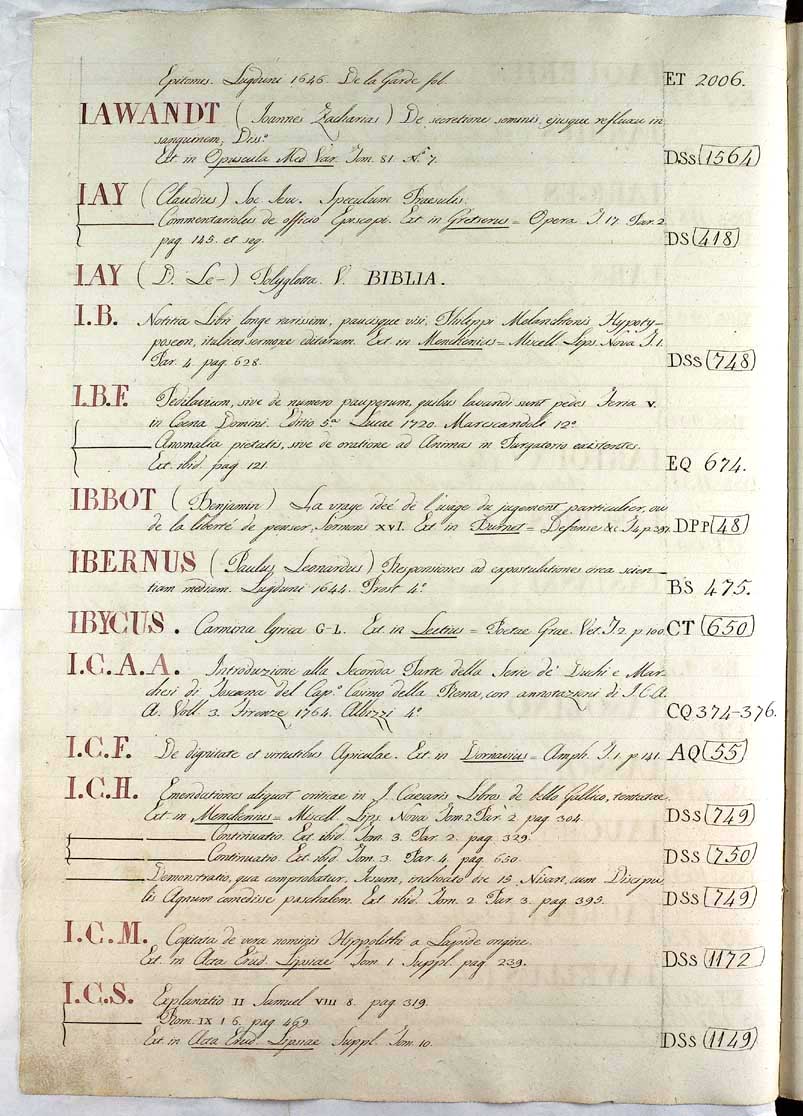 Epitomes. Lugduni 1646. De la Garde fol. ET 2006.
IAWANDT (Ioannes Zacharias) De secretione seminis, ejusque refluxu in
sanguinem, Diss.ᵒ
Ext. in Opuscula Med Var. Tom. 81. N.º 7. DSs 1564
IAY (Claudius) Soc. Iesu. Speculum Praesulis.
Commentariolus de officio Episcopi. Ext. in Gretserus = Opera T. 17. Par. 2.
pag. 145. et seq. DS 418
IAY (D. Le-) Polyglotta. V. BIBLIA.
I.B. Notitia Libri longe rarissimi, paucisque visi, Philippi Melanchtonis Hypoty-
poseon, italico sermone editarum. Ext. in Menckenius = Miscell. Lips. Nova T. 1.
Par. 4. pag. 628. DSs 748
I.B.F. Pedilavium, sive de numero pauperum, quibus lavandi sunt pedes Feria V.
in Coena Domini. Editio 5.ª Lucae 1720. Marescandoli 12.º
Anomalia pietatis, sive de oratione ad Animas in Purgatorio existentes.
Ext. ibid. pag. 121. EQ 674.
IBBOT (Benjamin) La vraye ideé de l'usage du jugement particulier, ou
de la liberté de penser, Sermons XVI. Ext. in Burnet = Defense &c. T. 4. p. 387. DPP 48
IBERNUS (Paulus Leonardus) Responsiones ad expostulationes circa scien-
tiam mediam. Lugduni 1644. Prost 4.º BS 475.
IBYCUS. Carmina lyrica G-L. Ext. in Lectius = Poetae Grae. Vet. T. 2. p. 100. CT 650
I.C.A.A. Introduzione alla Seconda Parte della Serie de' Duchi e Mar-
chesi di Toscana del Cap.º Cosimo della Rena, con annotazioni di I.C.A.
A. Voll. 3. Firenze 1764. Albizzi 4.º CQ 374-376.
I.C.F. De dignitate et virtutibus Apiculae. Ext. in Dornavius = Amph. T. 1. p. 141. AQ 55
I.C.H. Emendationes aliquot criticae in J. Caesaris Libros de bello Gallico, tentatae.
Ext. in Menckenius = Miscell. Lips. Nova Tom. 2. Par. 2. pag. 304. DSS 749
Continuatio. Ext. ibid. Tom. 3. Par. 2. pag. 329.
Continuatio. Ext. ibid. Tom. 3. Par. 4. pag. 650. DSS 750
Demonstratio, qua comprobatur, Iesum, inchoato die 15. Nisan, cum Discipu-
lis Agnum comedisse paschalem. Ext. ibid. Tom. 2. Par. 3. pag. 395. DSS 749
I.C.M. Cogitata de vera nominis Hippolithi a Lapide origine.
Ext. in Acta Erud. Lipsiae Tom. 1. Suppl. pag. 239. DSs 1172
I.C.S. Explanatio II Samuel VIII 8. pag. 319.
Rom. IX 1 6. pag. 469.
Ext. in Acta Erud. Lipsiae Suppl. Tom. 10. DSs 1149